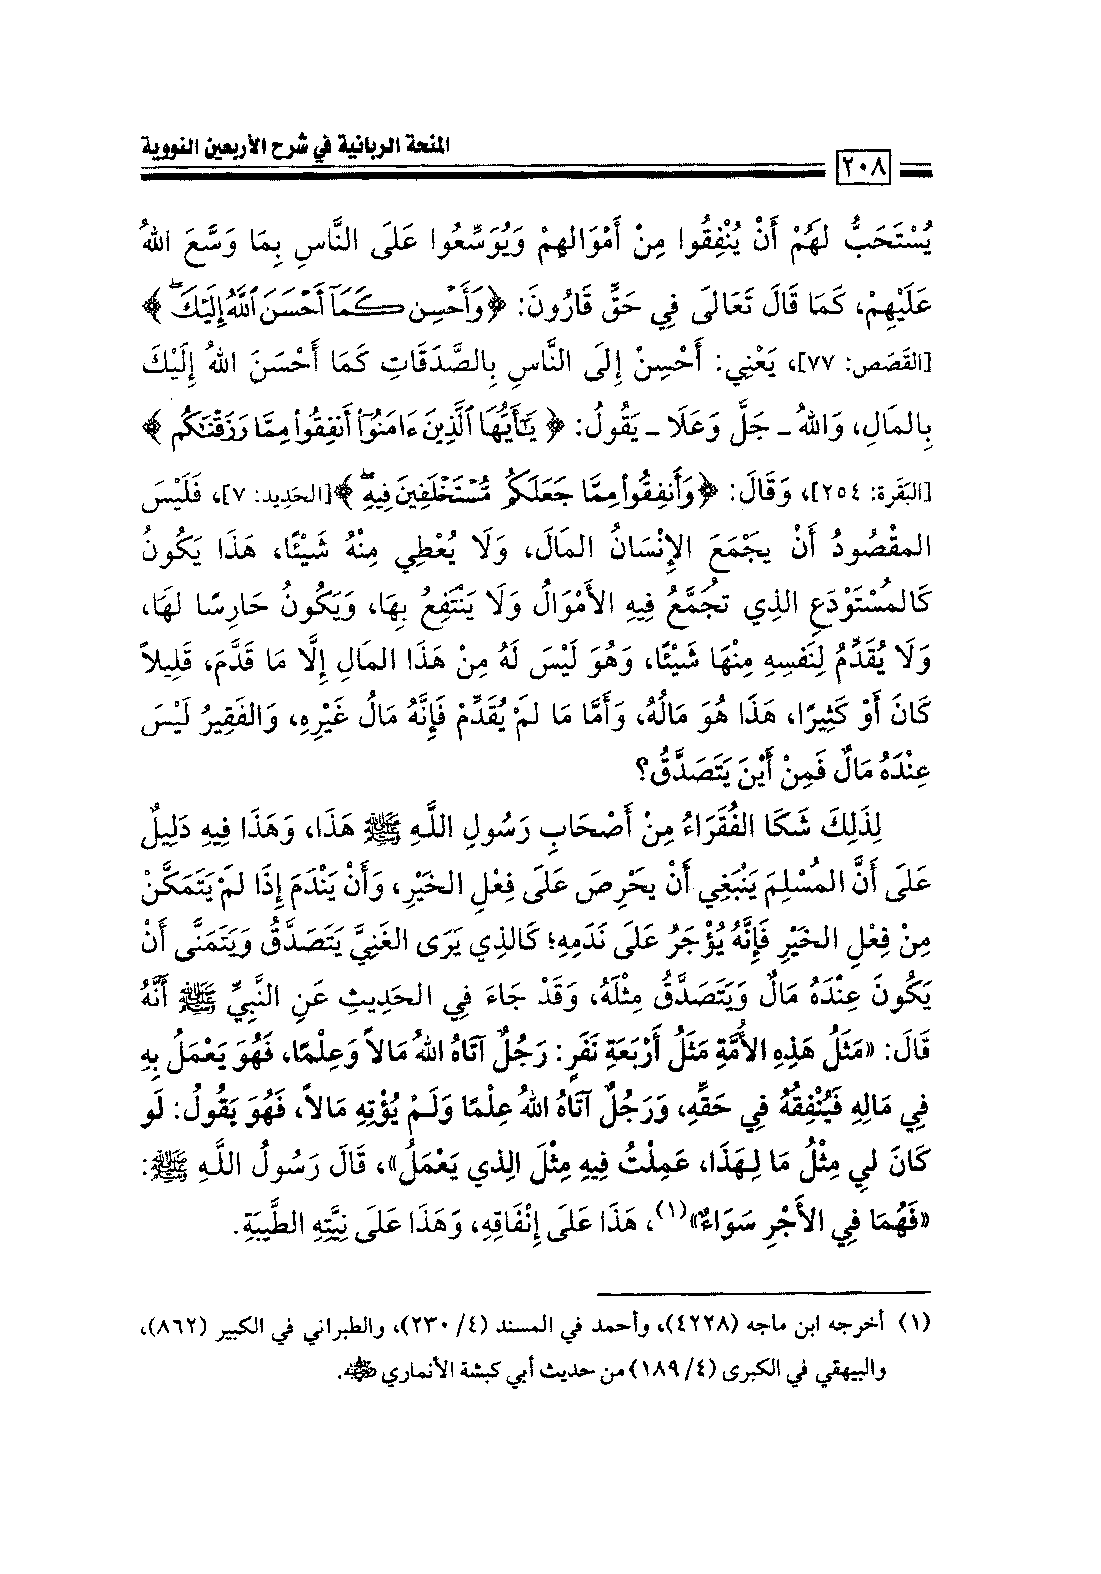 المنحة الربانية في شرح الأربعين النووية
٢٠٨
يُسْتَحَبُّ لَهُمْ أَنْ يُنْفِقُوا مِنْ أَمْوَالِهِمْ وَيُوَسِّعُوا عَلَى النَّاسِ بِمَا وَسَّعَ اللهُ
عَلَيْهِمْ، كَمَا قَالَ تَعَالَى فِي حَقِّ قَارُونَ: ﴿وَأَحْسِن كَمَآ أَحْسَنَ ٱللَّهُ إِلَيْكَۖ﴾
[القَصَص: ٧٧]، يَعْنِي: أَحْسِنْ إِلَى النَّاسِ بِالصَّدَقَاتِ كَمَا أَحْسَنَ اللهُ إِلَيْكَ
بِالمَالِ، وَاللهُ ـ جَلَّ وَعَلَا ـ يَقُولُ: ﴿يَٰٓأَيُّهَا ٱلَّذِينَ ءَامَنُوٓا۟ أَنفِقُوا۟ مِمَّا رَزَقْنَٰكُم﴾
[البَقَرَة: ٢٥٤]، وَقَالَ: ﴿وَأَنفِقُوا۟ مِمَّا جَعَلَكُم مُّسْتَخْلَفِينَ فِيهِۖ﴾ [الحَدِيد: ٧]، فَلَيْسَ
المَقْصُودُ أَنْ يَجْمَعَ الإِنْسَانُ المَالَ، وَلَا يُعْطِي مِنْهُ شَيْئًا، هَذَا يَكُونُ
كَالمُسْتَوْدَعِ الذِي تُجَمَّعُ فِيهِ الأَمْوَالُ وَلَا يَنْتَفِعُ بِهَا، وَيَكُونُ حَارِسًا لَهَا،
وَلَا يُقَدِّمُ لِنَفْسِهِ مِنْهَا شَيْئًا، وَهُوَ لَيْسَ لَهُ مِنْ هَذَا المَالِ إِلَّا مَا قَدَّمَ، قَلِيلاً
كَانَ أَوْ كَثِيرًا، هَذَا هُوَ مَالُهُ، وَأَمَّا مَا لَمْ يُقَدِّمْ فَإِنَّهُ مَالُ غَيْرِهِ، وَالفَقِيرُ لَيْسَ
عِنْدَهُ مَالٌ فَمِنْ أَيْنَ يَتَصَدَّقُ؟
لِذَلِكَ شَكَا الفُقَرَاءُ مِنْ أَصْحَابِ رَسُولِ اللَّهِ ﷺ هَذَا، وَهَذَا فِيهِ دَلِيلٌ
عَلَى أَنَّ المُسْلِمَ يَنْبَغِي أَنْ يَحْرِصَ عَلَى فِعْلِ الخَيْرِ، وَأَنْ يَنْدَمَ إِذَا لَمْ يَتَمَكَّنْ
مِنْ فِعْلِ الخَيْرِ فَإِنَّهُ يُؤْجَرُ عَلَى نَدَمِهِ؛ كَالذِي يَرَى الغَنِيَّ يَتَصَدَّقُ وَيَتَمَنَّى أَنْ
يَكُونَ عِنْدَهُ مَالٌ وَيَتَصَدَّقُ مِثْلَهُ، وَقَدْ جَاءَ فِي الحَدِيثِ عَنِ النَّبِيِّ ﷺ أَنَّهُ
قَالَ: «مَثَلُ هَذِهِ الأُمَّةِ مَثَلُ أَرْبَعَةِ نَفَرٍ: رَجُلٌ آتَاهُ اللهُ مَالاً وَعِلْمًا، فَهُوَ يَعْمَلُ بِهِ
فِي مَالِهِ فَيُنْفِقُهُ فِي حَقِّهِ، وَرَجُلٌ آتَاهُ اللهُ عِلْمًا وَلَمْ يُؤْتِهِ مَالاً، فَهُوَ يَقُولُ: لَو
كَانَ لِي مِثْلُ مَا لِهَذَا، عَمِلْتُ فِيهِ مِثْلَ الذِي يَعْمَلُ»، قَالَ رَسُولُ اللَّهِ ﷺ:
«فَهُمَا فِي الأَجْرِ سَوَاءٌ»(١)، هَذَا عَلَى إِنْفَاقِهِ، وَهَذَا عَلَى نِيَّتِهِ الطَّيِّبَةِ.
(١) أخرجه ابن ماجه (٤٢٢٨)، وأحمد في المسند (٤/ ٢٣٠)، والطبراني في الكبير (٨٦٢)،
والبيهقي في الكبرى (٤/ ١٨٩) من حديث أبي كبشة الأنماري رضي الله عنه.